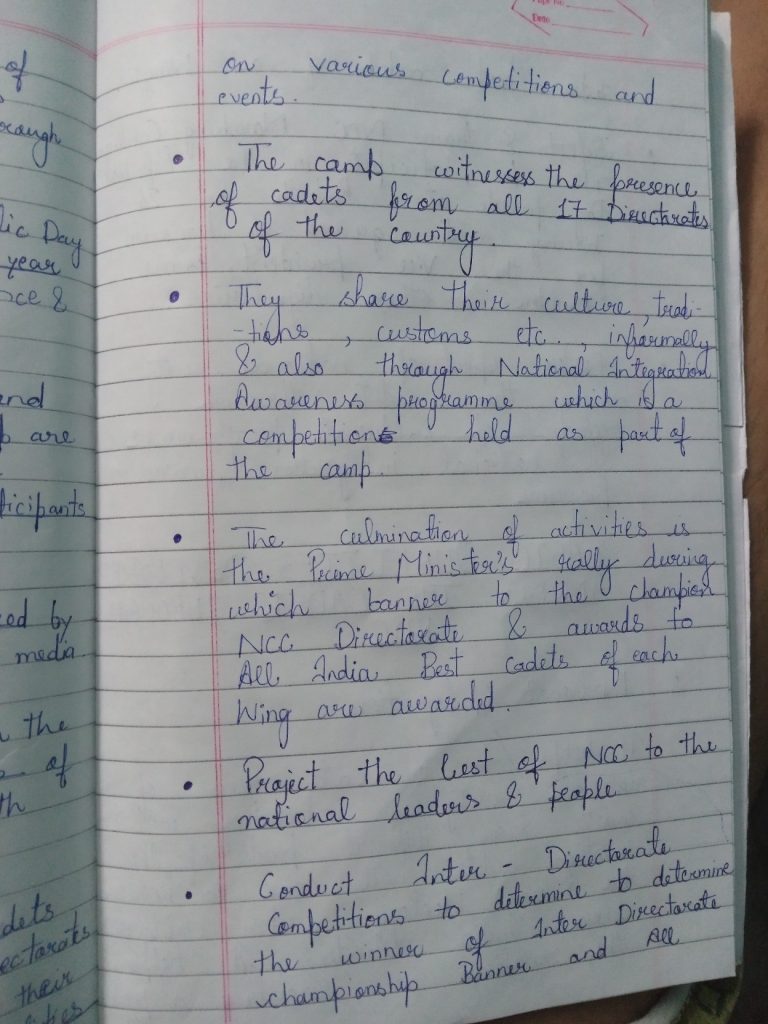 Date
of
rough
lic Day
year
nce &
and
are
ticipants
ed by
media
the
of
th
dets
ectorates
their
on various competitions and
events.
• The camp witnesses the presence
of cadets from all 17 Directorates
of the country.
• They share their culture, tradi-
-tions, customs etc., informally
& also through National Integration
Awareness programme which is a
competition held as part of
the camp.
• The culmination of activities is
the Prime Minister's rally during
which banner to the champion
NCC Directorate & awards to
All India Best Cadets of each
Wing are awarded.
• Project the best of NCC to the
national leaders & people
• Conduct Inter - Directorate
Competitions to determine to determine
the winner of Inter Directorate
championship Banner and All